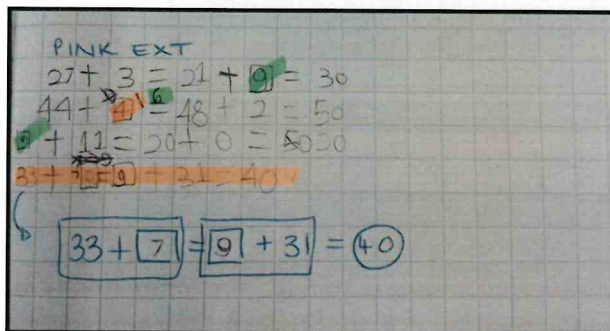 PINK EXT
27 + 3 = 21 + 9 = 30
44 + 6 = 48 + 2 = 50
9 + 11 = 20 + 0 = 20
33 + 9 + 31 = 40
33 + 7 = 9 + 31 = 40